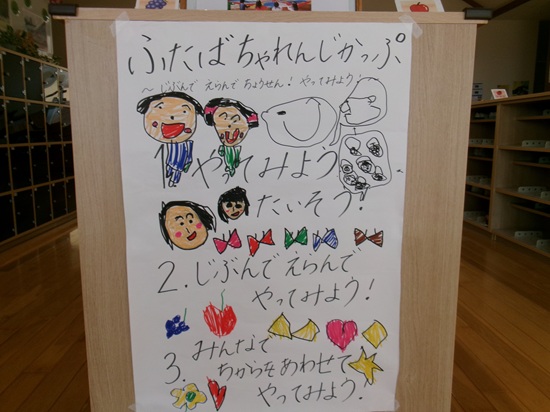 ふたばちゃれんじかっぷ
～じぶんで えらんで ちょうせん！ やってみよう！～
1. やってみよう
たいそう！
2. じぶんで えらんで
やってみよう！
3. みんなで
ちからをあわせて
やってみよう！